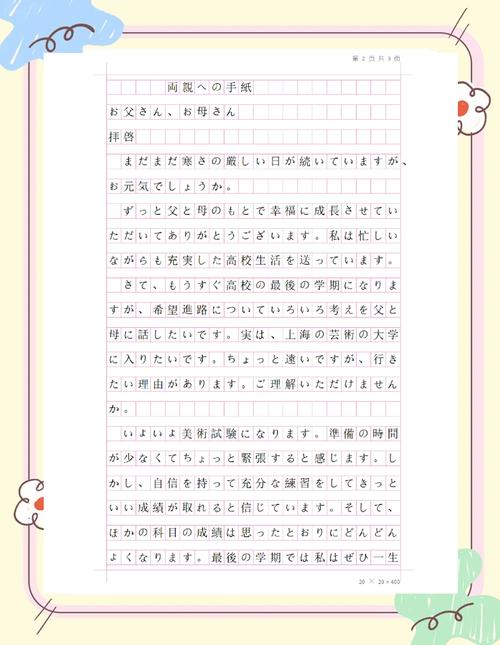 第 2 页 共 3 页
両親への手紙
お父さん、お母さん
拝啓
まだまだ寒さの厳しい日が続いていますが、
お元気でしょうか。
ずっと父と母のもとで幸福に成長させてい
ただいてありがとうございます。私は忙しい
ながらも充実した高校生活を送っています。
さて、もうすぐ高校の最後の学期になりま
すが、希望進路についていろいろ考えを父と
母に話したいです。実は、上海の芸術の大学
に入りたいです。ちょっと遠いですが、行き
たい理由があります。ご理解いただけません
か。
いよいよ美術試験になります。準備の時間
が少なくてちょっと緊張すると感じます。し
かし、自信を持って充分な練習をしてきっと
いい成績が取れると信じています。そして、
ほかの科目の成績は思ったとおりにどんどん
よくなります。最後の学期では私はぜひ一生
20 × 20=400